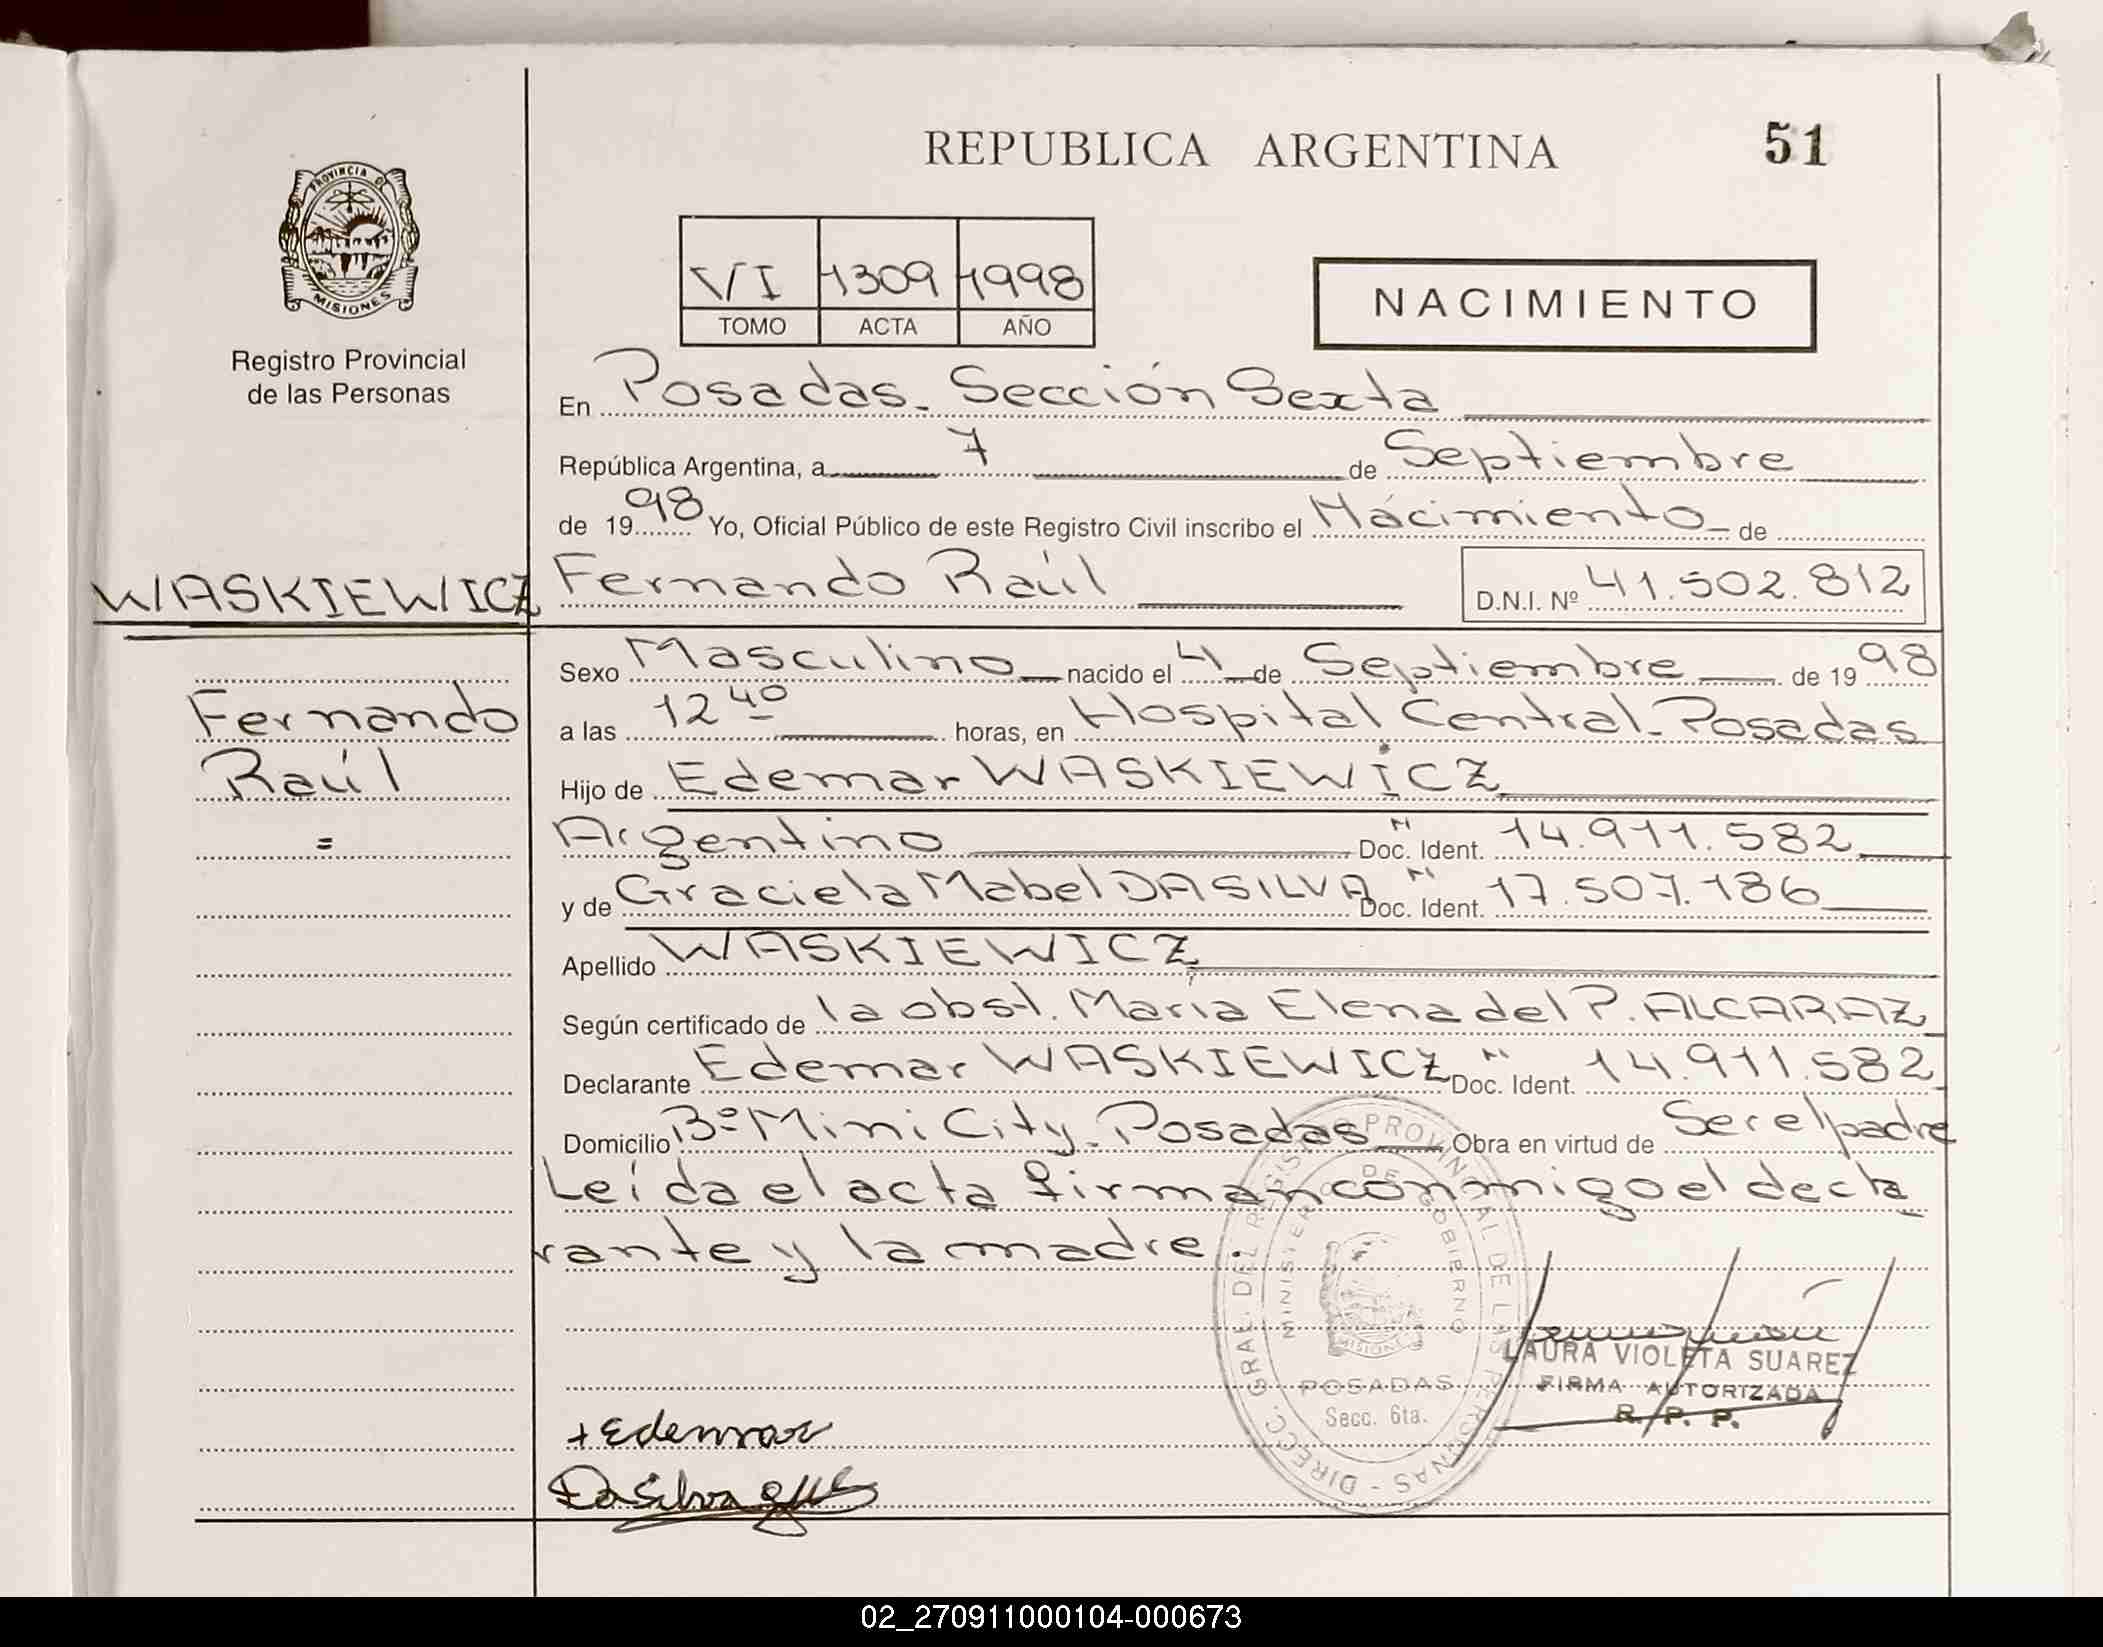 REPUBLICA ARGENTINA
51
PROVINCIA DE
MISIONES
Registro Provincial
de las Personas
VI 1309 1998
TOMO ACTA AÑO
NACIMIENTO
En Posadas - Sección Sexta
República Argentina, a 7 de Septiembre
de 1998 Yo, Oficial Público de este Registro Civil inscribo el Nacimiento - de
WASKIEWICZ Fernando Raúl D.N.I. Nº 41.502.812
Sexo Masculino nacido el 4 de Septiembre de 1998
Fernando
Raúl
=
a las 12 40 horas, en Hospital Central - Posadas
Hijo de Edemar WASKIEWICZ
Argentino Doc. Ident. 14.911.582
y de Graciela Mabel DA SILVA Doc. Ident. 17.507.186
Apellido WASKIEWICZ
Según certificado de la obst. María Elena del P. ALCARAZ
Declarante Edemar WASKIEWICZ Doc. Ident. 14.911.582
Domicilio Bº Mini City - Posadas Obra en virtud de Ser el padre
Leída el acta firman conmigo el decla
rante y la madre.
DIRECC. GRAL. DEL REGISTRO PROVINCIAL DE LAS PERSONAS -
MINISTERIO DE GOBIERNO
MISIONES
POSADAS
Secc. 6ta.
LAURA VIOLETA SUAREZ
FIRMA AUTORIZADA
R. P. P.
+ Edemar
Da Silva
02_270911000104-000673